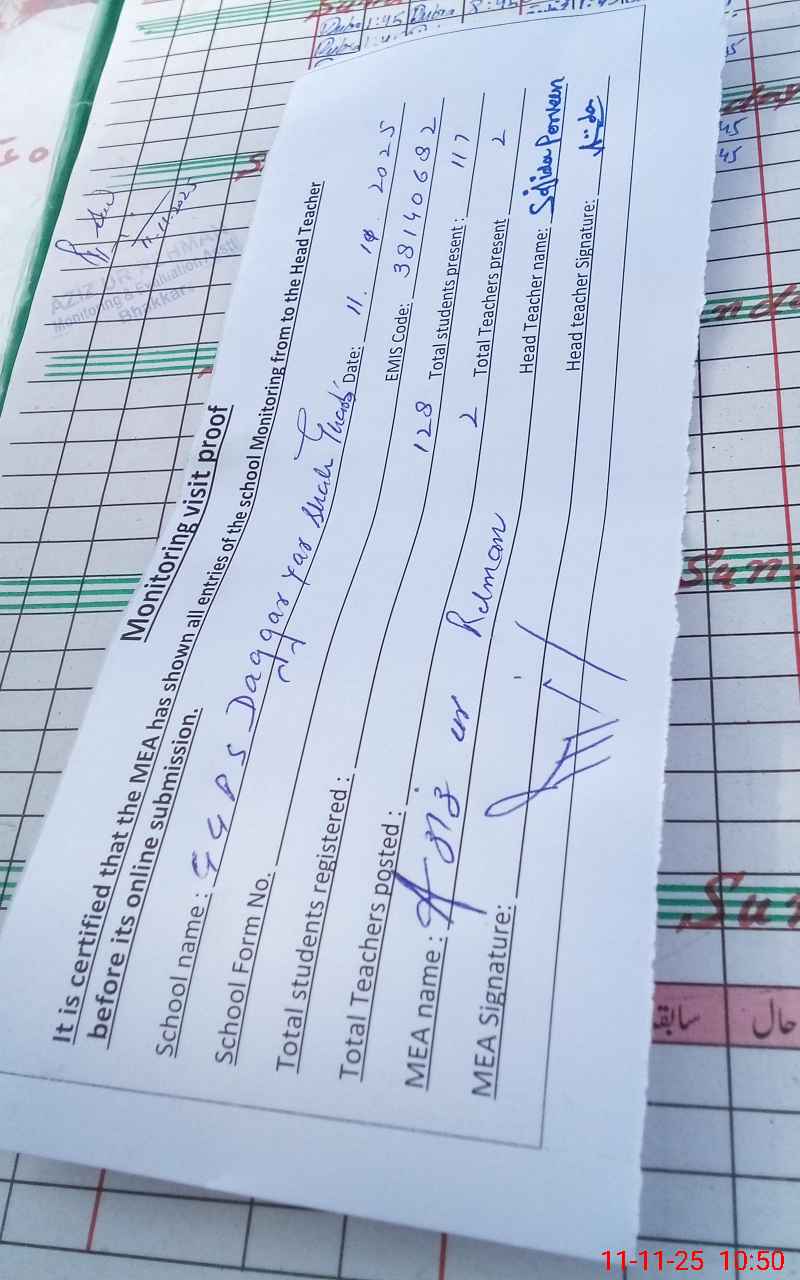 Monitoring visit proof
It is certified that the MEA has shown all entries of the school Monitoring from to the Head Teacher
before its online submission.
School name : GGPS Daggar Yar Shah Date: 11. 11. 2025
School Form No. EMIS Code: 38140632
Total students registered : 128 Total students present : 117
Total Teachers posted : 2 Total Teachers present 2
MEA name : Aziz ur Rehman Head Teacher name: Sajida Parveen
MEA Signature: Head teacher Signature: Sajida
11.11.2025
AZIZ UR REHMAN
Monitoring & Evaluation Asstt
Bhakkar
Sun
سابقہ
حال
11-11-25 10:50